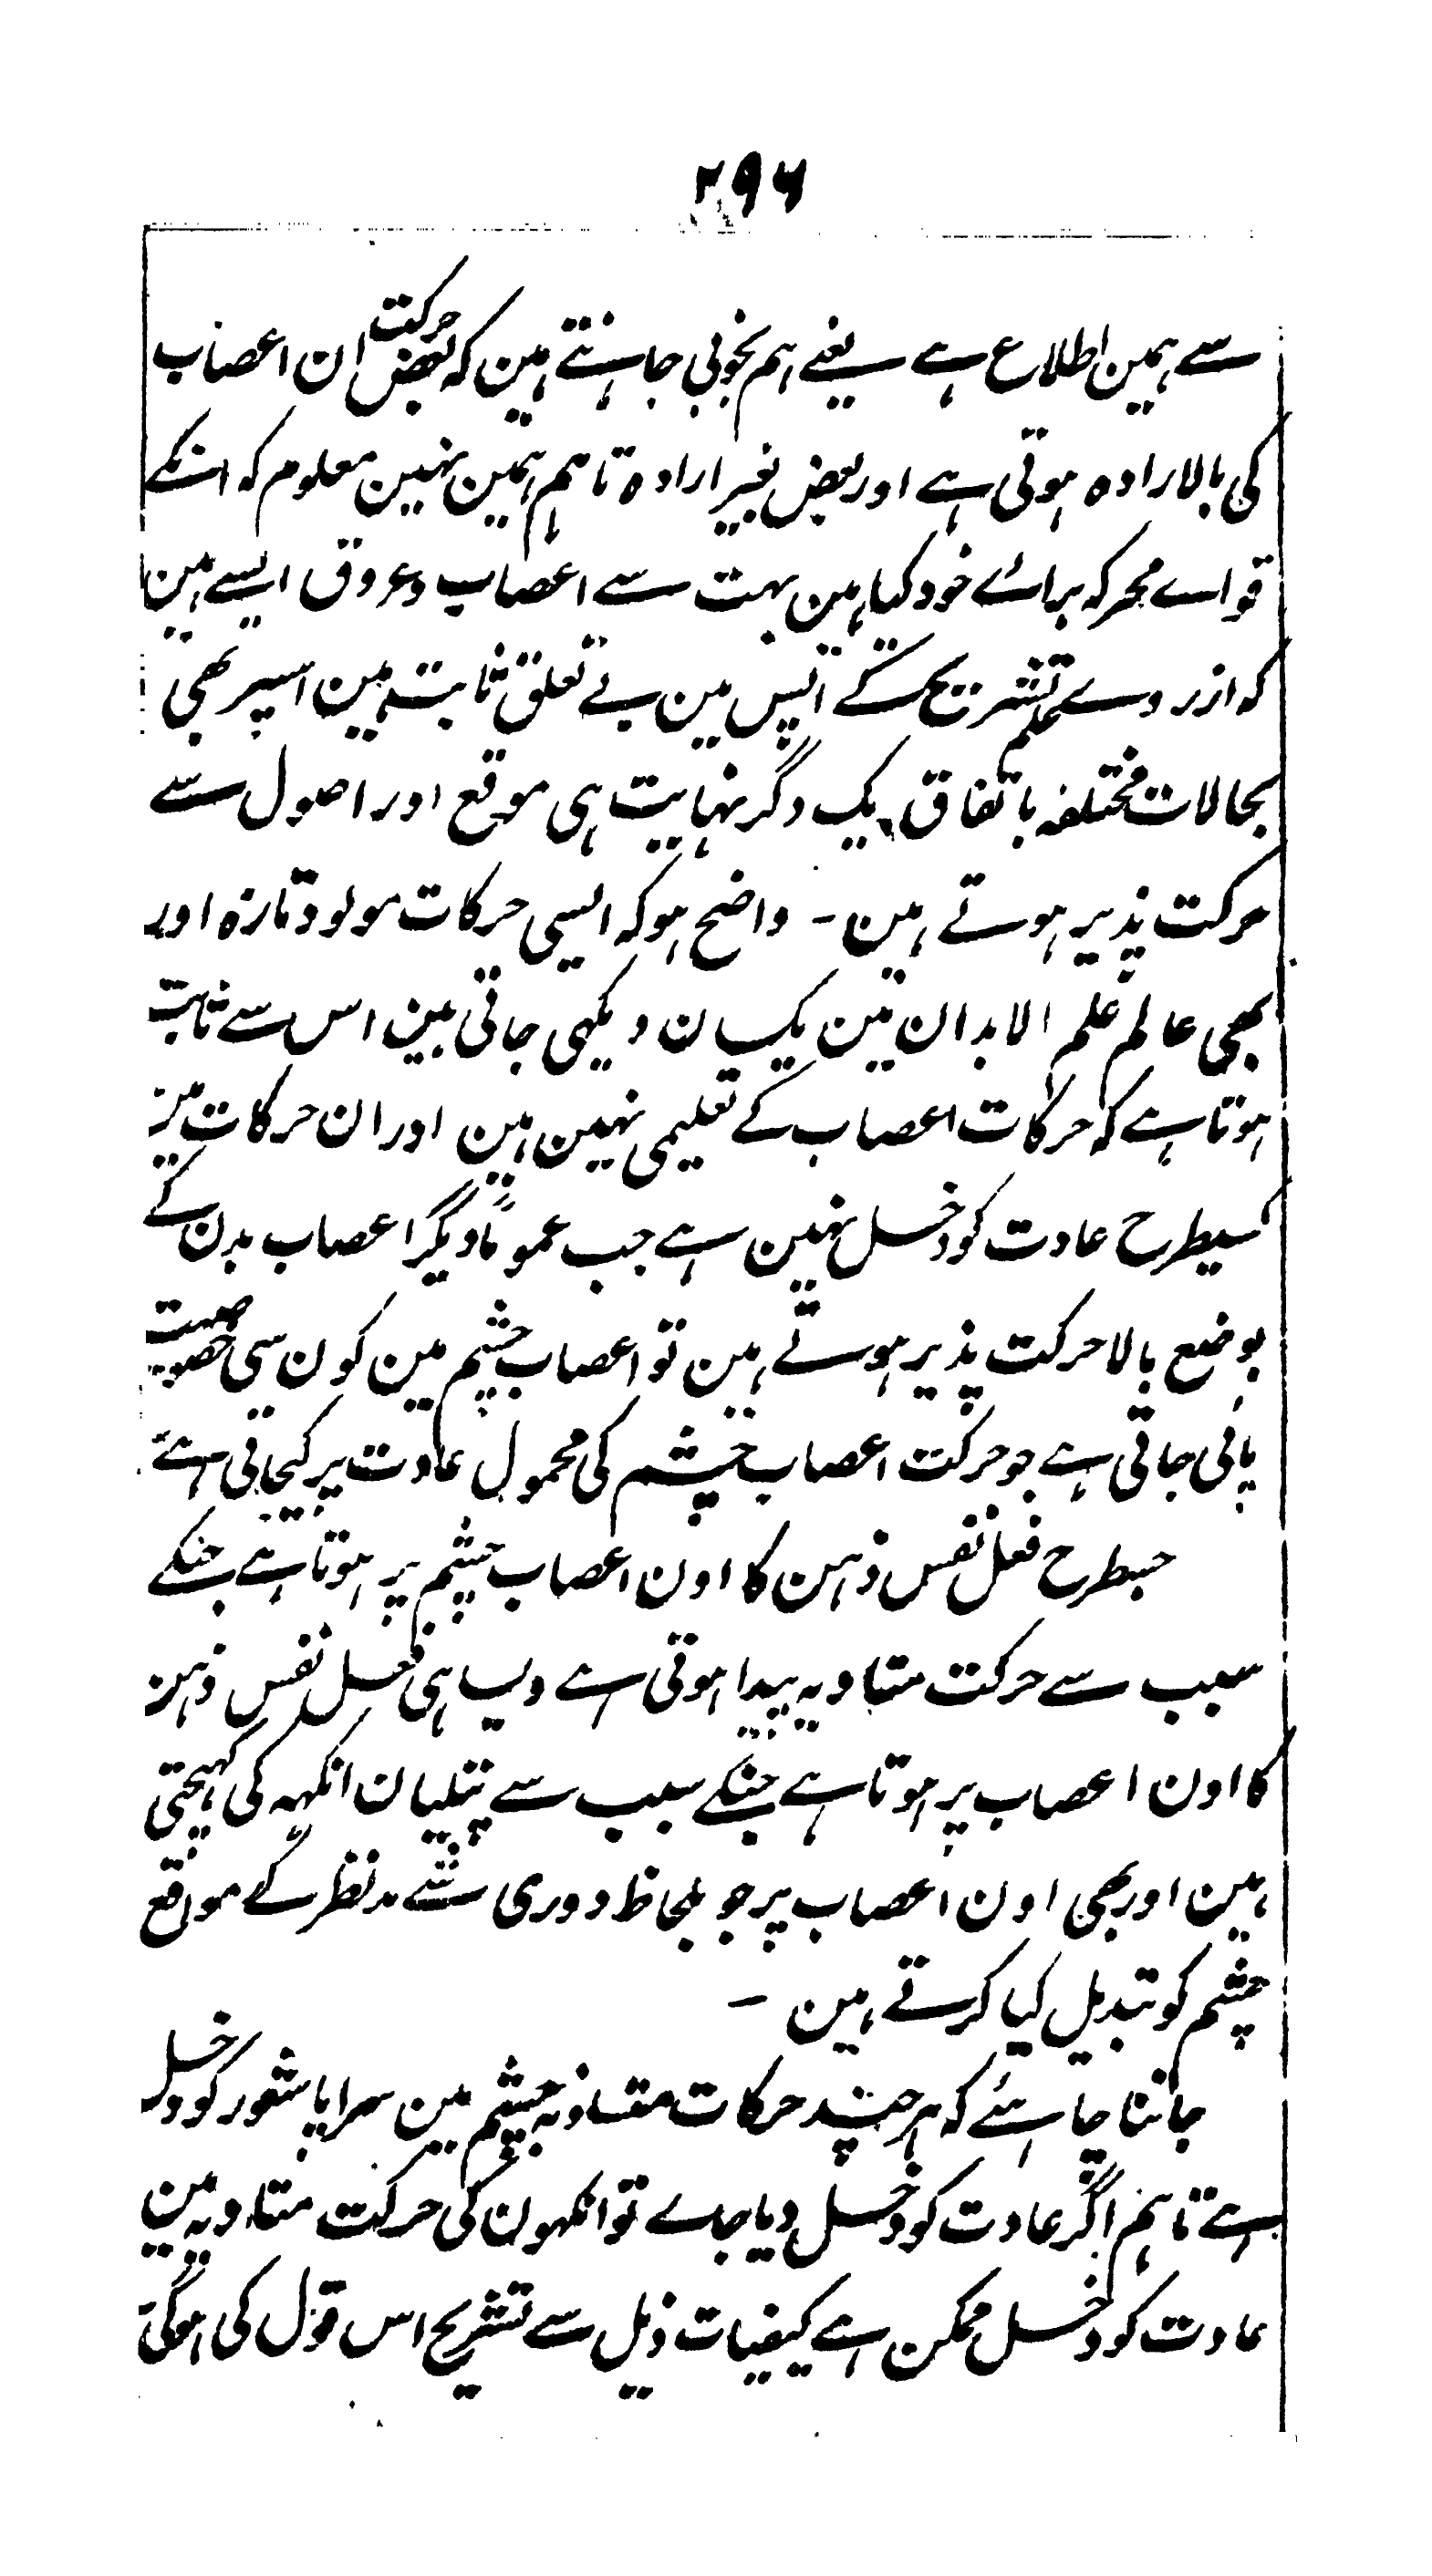 ۲۹۶
سے ہمین اطلاع ہے یعنے ہم بخوبی جانتے ہین کہ بعض حرکت ان اعصاب
کی بالارادہ ہوتی ہے اور بعض بغیر ارادہ تاہم ہمین نہین معلوم کہ انکے
قواے محرکہ براے خود کیا ہین بہت سے اعصاب و عروق ایسے ہین
کہ ازروے علم تشریح کے آپس مین بے تعلق ثابت ہین اسپر بھی
بحالات مختلفہ باتفاق یک دگر نہایت ہی موقع اور اصول سے
حرکت پذیر ہوتے ہین - واضح ہو کہ ایسی حرکات مولود تازہ اور
بھی عالم علم الابدان مین یکسان دیکھی جاتی ہین اس سے ثابت
ہوتا ہے کہ حرکات اعصاب کے تعلیمی نہین ہین اور ان حرکات مین
کسیطرح عادت کو دخل نہین ہے جب عموماً دیگر اعصاب بدن کے
بوضع بالا حرکت پذیر ہوتے ہین تو اعصاب چشم مین کون سی خصوصیت
پائی جاتی ہے جو حرکت اعصاب چشم کی محمول عادت پر کیجاتی ہے
جسطرح فعل نفس ذہن کا اون اعصاب چشم پر ہوتا ہے جنکے
سبب سے حرکت متساویہ پیدا ہوتی ہے ویسا ہی فعل نفس ذہن
کا اون اعصاب پر ہوتا ہے جنکے سبب سے پتلیان انکہہ کی کہچتی
ہین اور بھی اون اعصاب پر جو بلحاظ دوری شے مد نظر کے مواقع
چشم کو تبدیل کیا کرتے ہین -
جاننا چاہئے کہ ہر چند حرکات متساویہ چشم مین سراپا شعور کو دخل
ہے تاہم اگر عادت کو دخل دیا جاے تو انکہون کی حرکت متساویہ مین
عادت کو دخل ممکن ہے کیفیات ذیل سے تشریح اس قول کی ہوگی